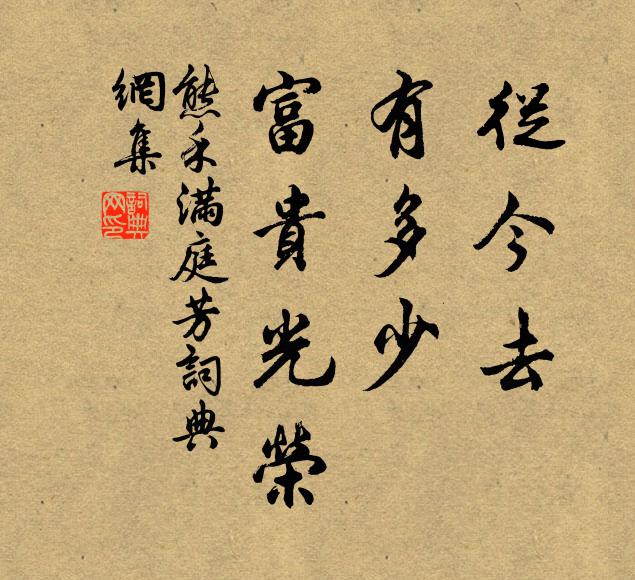 從今去
有多少
富貴光榮
熊禾滿庭芳詞典
網集
詞典網印